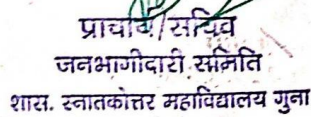 प्राचार्य/सचिव
जनभागीदारी समिति
शास. स्नातकोत्तर महाविद्यालय गुना